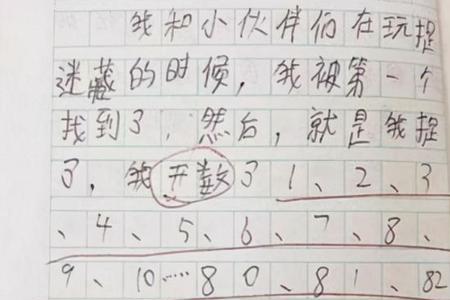 我和小伙伴们在玩捉
迷藏的时候，我被第一个
找到了，然后，就是我捉
了，我开数了1、2、3
、4、5、6、7、8、
9、10……80、81、82